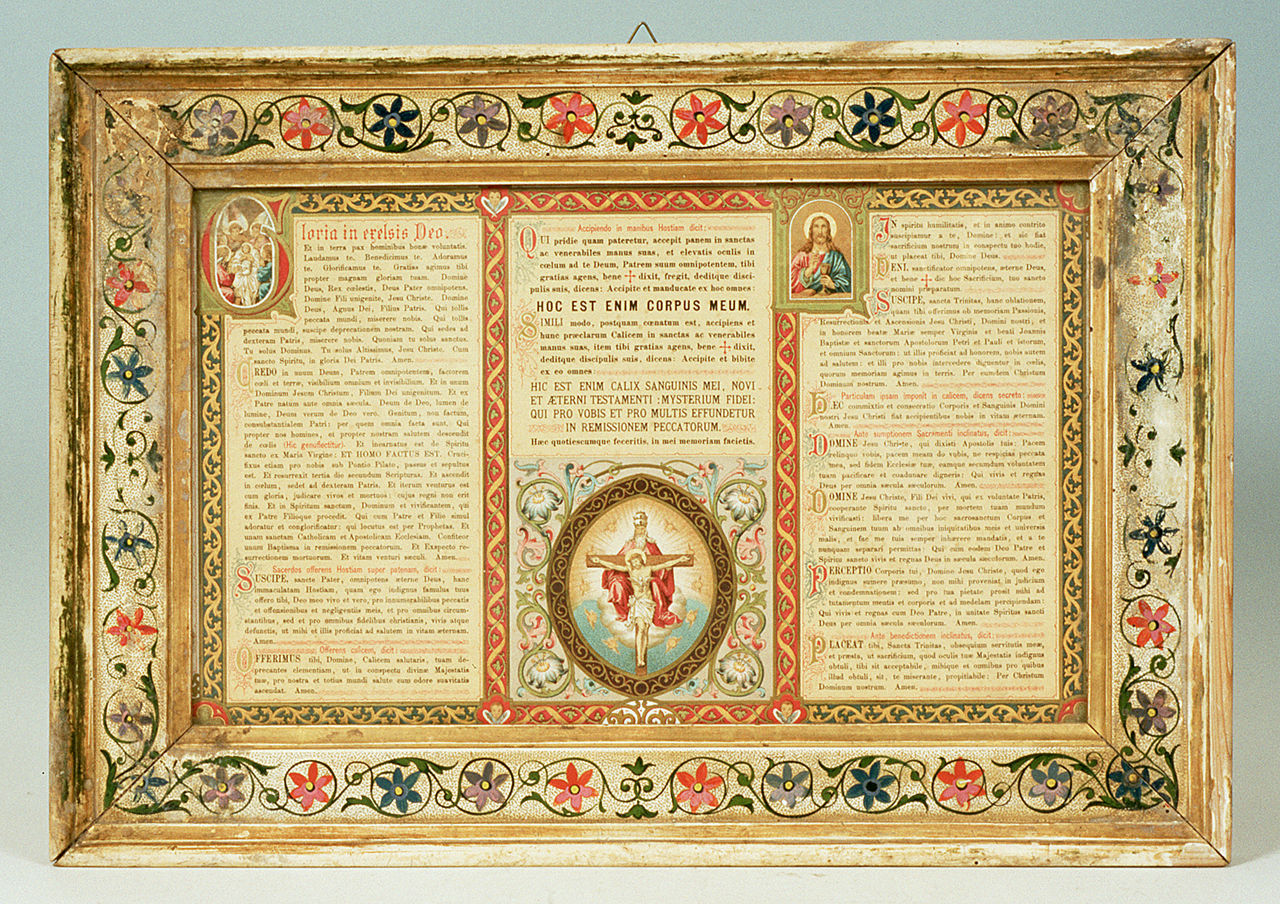 Gloria in exelsis Deo.
Et in terra pax hominibus bonæ voluntatis.
Laudamus te. Benedicimus te. Adoramus
te. Glorificamus te. Gratias agimus tibi
propter magnam gloriam tuam. Domine
Deus, Rex cœlestis, Deus Pater omnipotens.
Domine Fili unigenite, Jesu Christe. Domine
Deus, Agnus Dei, Filius Patris. Qui tollis
peccata mundi, miserere nobis. Qui tollis
peccata mundi, suscipe deprecationem nostram. Qui sedes ad
dexteram Patris, miserere nobis. Quoniam tu solus sanctus.
Tu solus Dominus. Tu solus Altissimus, Jesu Christe. Cum
sancto Spiritu, in gloria Dei Patris. Amen.
CREDO in unum Deum, Patrem omnipotentem, factorem
cœli et terræ, visibilium omnium et invisibilium. Et in unum
Dominum Jesum Christum, Filium Dei unigenitum. Et ex
Patre natum ante omnia sæcula. Deum de Deo, lumen de
lumine, Deum verum de Deo vero. Genitum, non factum,
consubstantialem Patri: per quem omnia facta sunt. Qui
propter nos homines, et propter nostram salutem descendit
de cœlis (Hic genuflectitur). Et incarnatus est de Spiritu
sancto ex Maria Virgine: ET HOMO FACTUS EST. Cruci-
fixus etiam pro nobis sub Pontio Pilato, passus et sepultus
est. Et resurrexit tertia die secundum Scripturas. Et ascendit
in cœlum, sedet ad dexteram Patris. Et iterum venturus est
cum gloria, judicare vivos et mortuos: cujus regni non erit
finis. Et in Spiritum sanctum, Dominum et vivificantem, qui
ex Patre Filioque procedit. Qui cum Patre et Filio simul
adoratur et conglorificatur: qui locutus est per Prophetas. Et
unam sanctam Catholicam et Apostolicam Ecclesiam. Confiteor
unum Baptisma in remissionem peccatorum. Et Exspecto re-
surrectionem mortuorum. Et vitam venturi sæculi. Amen.
Sacerdos offerens Hostiam super patenam, dicit:
SUSCIPE, sancte Pater, omnipotens æterne Deus, hanc
immaculatam Hostiam, quam ego indignus famulus tuus
offero tibi, Deo meo vivo et vero, pro innumerabilibus peccatis
et offensionibus et negligentiis meis, et pro omnibus circum-
stantibus, sed et pro omnibus fidelibus christianis, vivis atque
defunctis, ut mihi et illis proficiat ad salutem in vitam æternam.
Amen.
Offerens calicem, dicit:
OFFERIMUS tibi, Domine, Calicem salutaris, tuam de-
precantes clementiam, ut in conspectu divinæ Majestatis
tuæ, pro nostra et totius mundi salute cum odore suavitatis
ascendat. Amen.
Accipiendo in manibus Hostiam dicit:
QUI pridie quam pateretur, accepit panem in sanctas
ac venerabiles manus suas, et elevatis oculis in
cœlum ad te Deum, Patrem suum omnipotentem, tibi
gratias agens, bene + dixit, fregit, deditque disci-
pulis suis, dicens: Accipite et manducate ex hoc omnes:
HOC EST ENIM CORPUS MEUM.
SIMILI modo, postquam cœnatum est, accipiens et
hunc præclarum Calicem in sanctas ac venerabiles
manus suas, item tibi gratias agens, bene + dixit,
deditque discipulis suis, dicens: Accipite et bibite
ex eo omnes
HIC EST ENIM CALIX SANGUINIS MEI, NOVI
ET ÆTERNI TESTAMENTI : MYSTERIUM FIDEI:
QUI PRO VOBIS ET PRO MULTIS EFFUNDETUR
IN REMISSIONEM PECCATORUM.
Hæc quotiescumque feceritis, in mei memoriam facietis.
IN spiritu humilitatis, et in animo contrito
suscipiamur a te, Domine; et sic fiat
sacrificium nostrum in conspectu tuo hodie,
ut placeat tibi, Domine Deus.
VENI, sanctificator omnipotens, æterne Deus,
et bene + dic hoc Sacrificium, tuo sancto
nomini præparatum.
SUSCIPE, sancta Trinitas, hanc oblationem,
quam tibi offerimus ob memoriam Passionis,
Resurrectionis et Ascensionis Jesu Christi, Domini nostri; et
in honorem beatæ Mariæ semper Virginis et beati Joannis
Baptistæ et sanctorum Apostolorum Petri et Pauli et istorum,
et omnium Sanctorum: ut illis proficiat ad honorem, nobis autem
ad salutem: et illi pro nobis intercedere dignentur in cœlis,
quorum memoriam agimus in terris. Per eumdem Christum
Dominum nostrum. Amen.
Particulam ipsam imponit in calicem, dicens secreto:
HÆC commixtio et consecratio Corporis et Sanguinis Domini
nostri Jesu Christi fiat accipientibus nobis in vitam æternam.
Amen.
Ante sumptionem Sacramenti inclinatus, dicit:
DOMINE Jesu Christe, qui dixisti Apostolis tuis: Pacem
relinquo vobis, pacem meam do vobis, ne respicias peccata
mea, sed fidem Ecclesiæ tuæ, eamque secundum voluntatem
tuam pacificare et coadunare digneris: Qui vivis et regnas
Deus per omnia sæcula sæculorum. Amen.
DOMINE Jesu Christe, Fili Dei vivi, qui ex voluntate Patris,
cooperante Spiritu sancto, per mortem tuam mundum
vivificasti: libera me per hoc sacrosanctum Corpus et
Sanguinem tuum ab omnibus iniquitatibus meis et universis
malis, et fac me tuis semper inhærere mandatis, et a te
nunquam separari permittas: Qui cum eodem Deo Patre et
Spiritu sancto vivis et regnas Deus in sæcula sæculorum. Amen.
PERCEPTIO Corporis tui, Domine Jesu Christe, quod ego
indignus sumere præsumo, non mihi proveniat in judicium
et condemnationem: sed pro tua pietate prosit mihi ad
tutamentum mentis et corporis et ad medelam percipiendam:
Qui vivis et regnas cum Deo Patre, in unitate Spiritus sancti
Deus per omnia sæcula sæculorum. Amen.
Ante benedictionem inclinatus, dicit:
PLACEAT tibi, Sancta Trinitas, obsequium servitutis meæ,
et præsta, ut sacrificium, quod oculis tuæ Majestatis indignus
obtuli, tibi sit acceptabile, mihique et omnibus pro quibus
illud obtuli, sit, te miserante, propitiabile: Per Christum
Dominum nostrum. Amen.